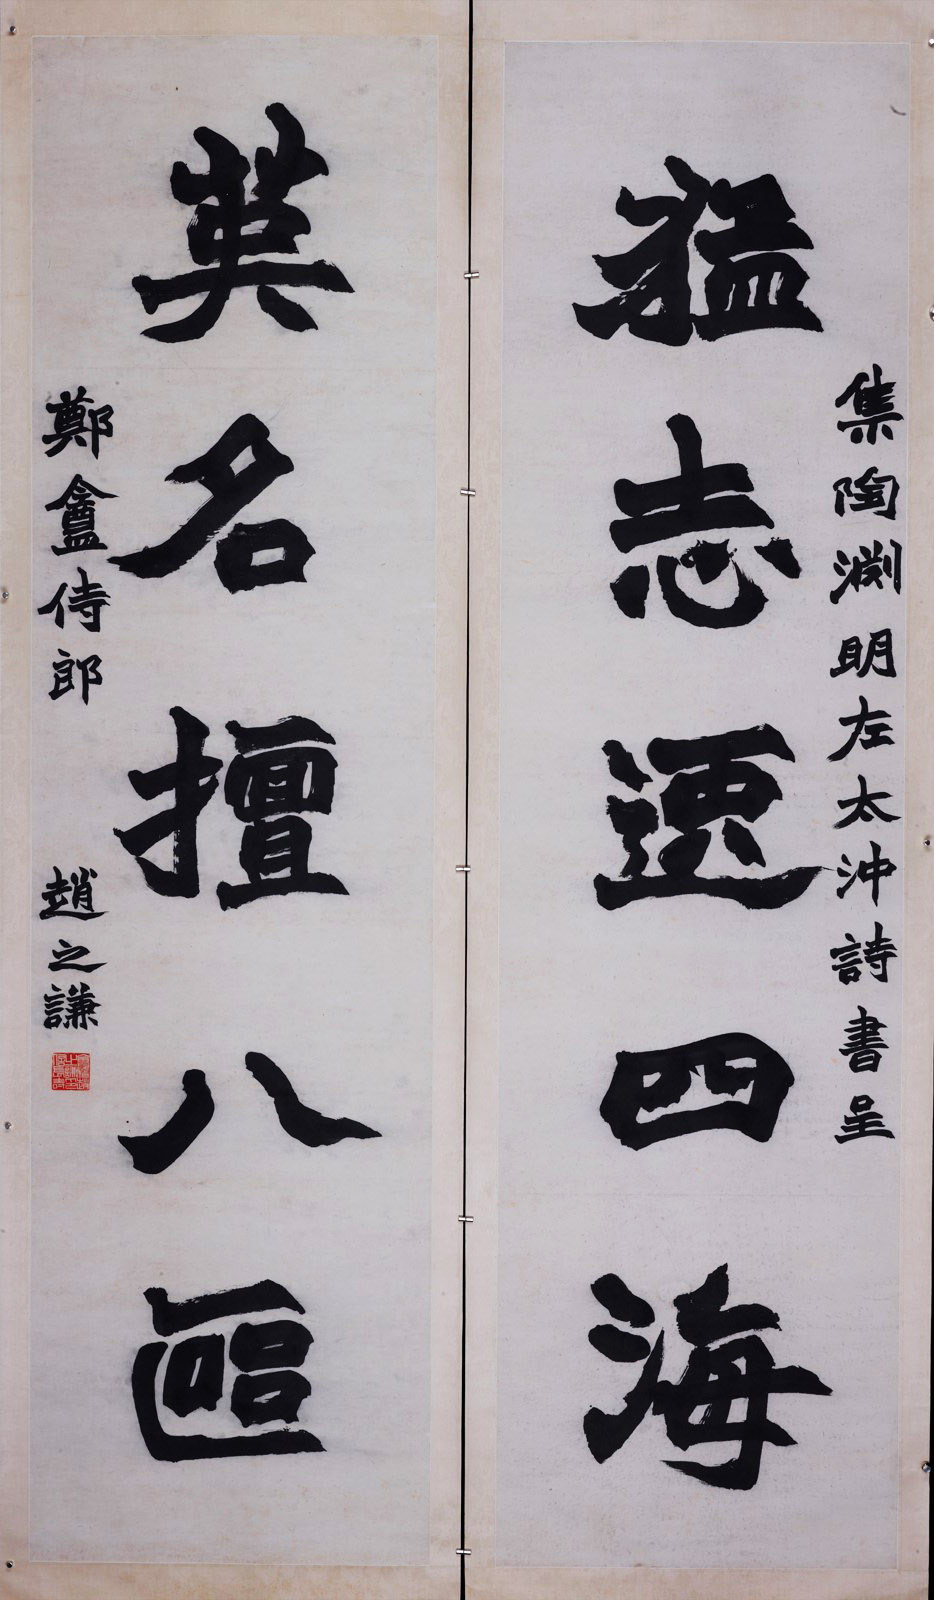 集陶淵明左太沖詩書呈
猛志逸四海
英名擅八區
鄭盦侍郎 趙之謙